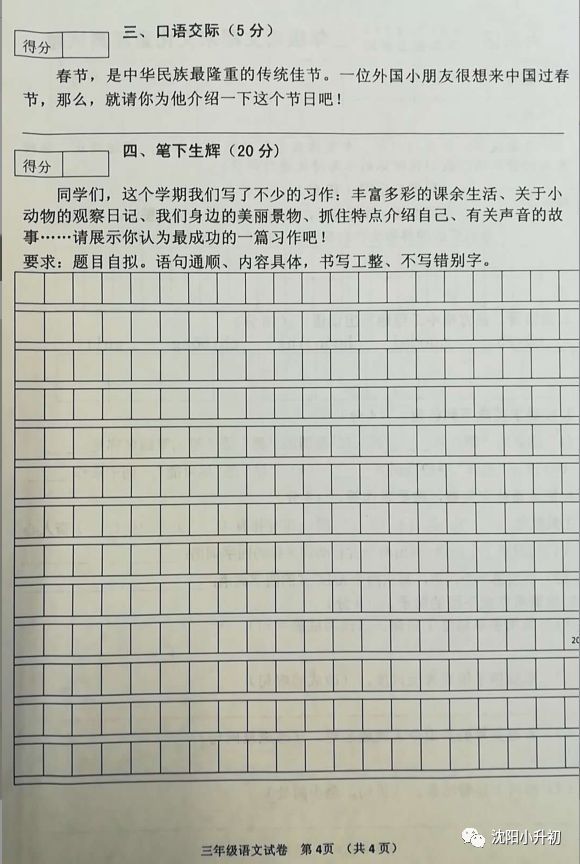 三、口语交际（5 分）
得分
春节，是中华民族最隆重的传统佳节。一位外国小朋友很想来中国过春
节，那么，就请你为他介绍一下这个节日吧！
四、笔下生辉（20 分）
得分
同学们，这个学期我们写了不少的习作：丰富多彩的课余生活、关于小
动物的观察日记、我们身边的美丽景物、抓住特点介绍自己、有关声音的故
事……请展示你认为最成功的一篇习作吧！
要求：题目自拟。语句通顺、内容具体，书写工整、不写错别字。
20
三年级语文试卷 第4页 （共4页）
沈阳小升初